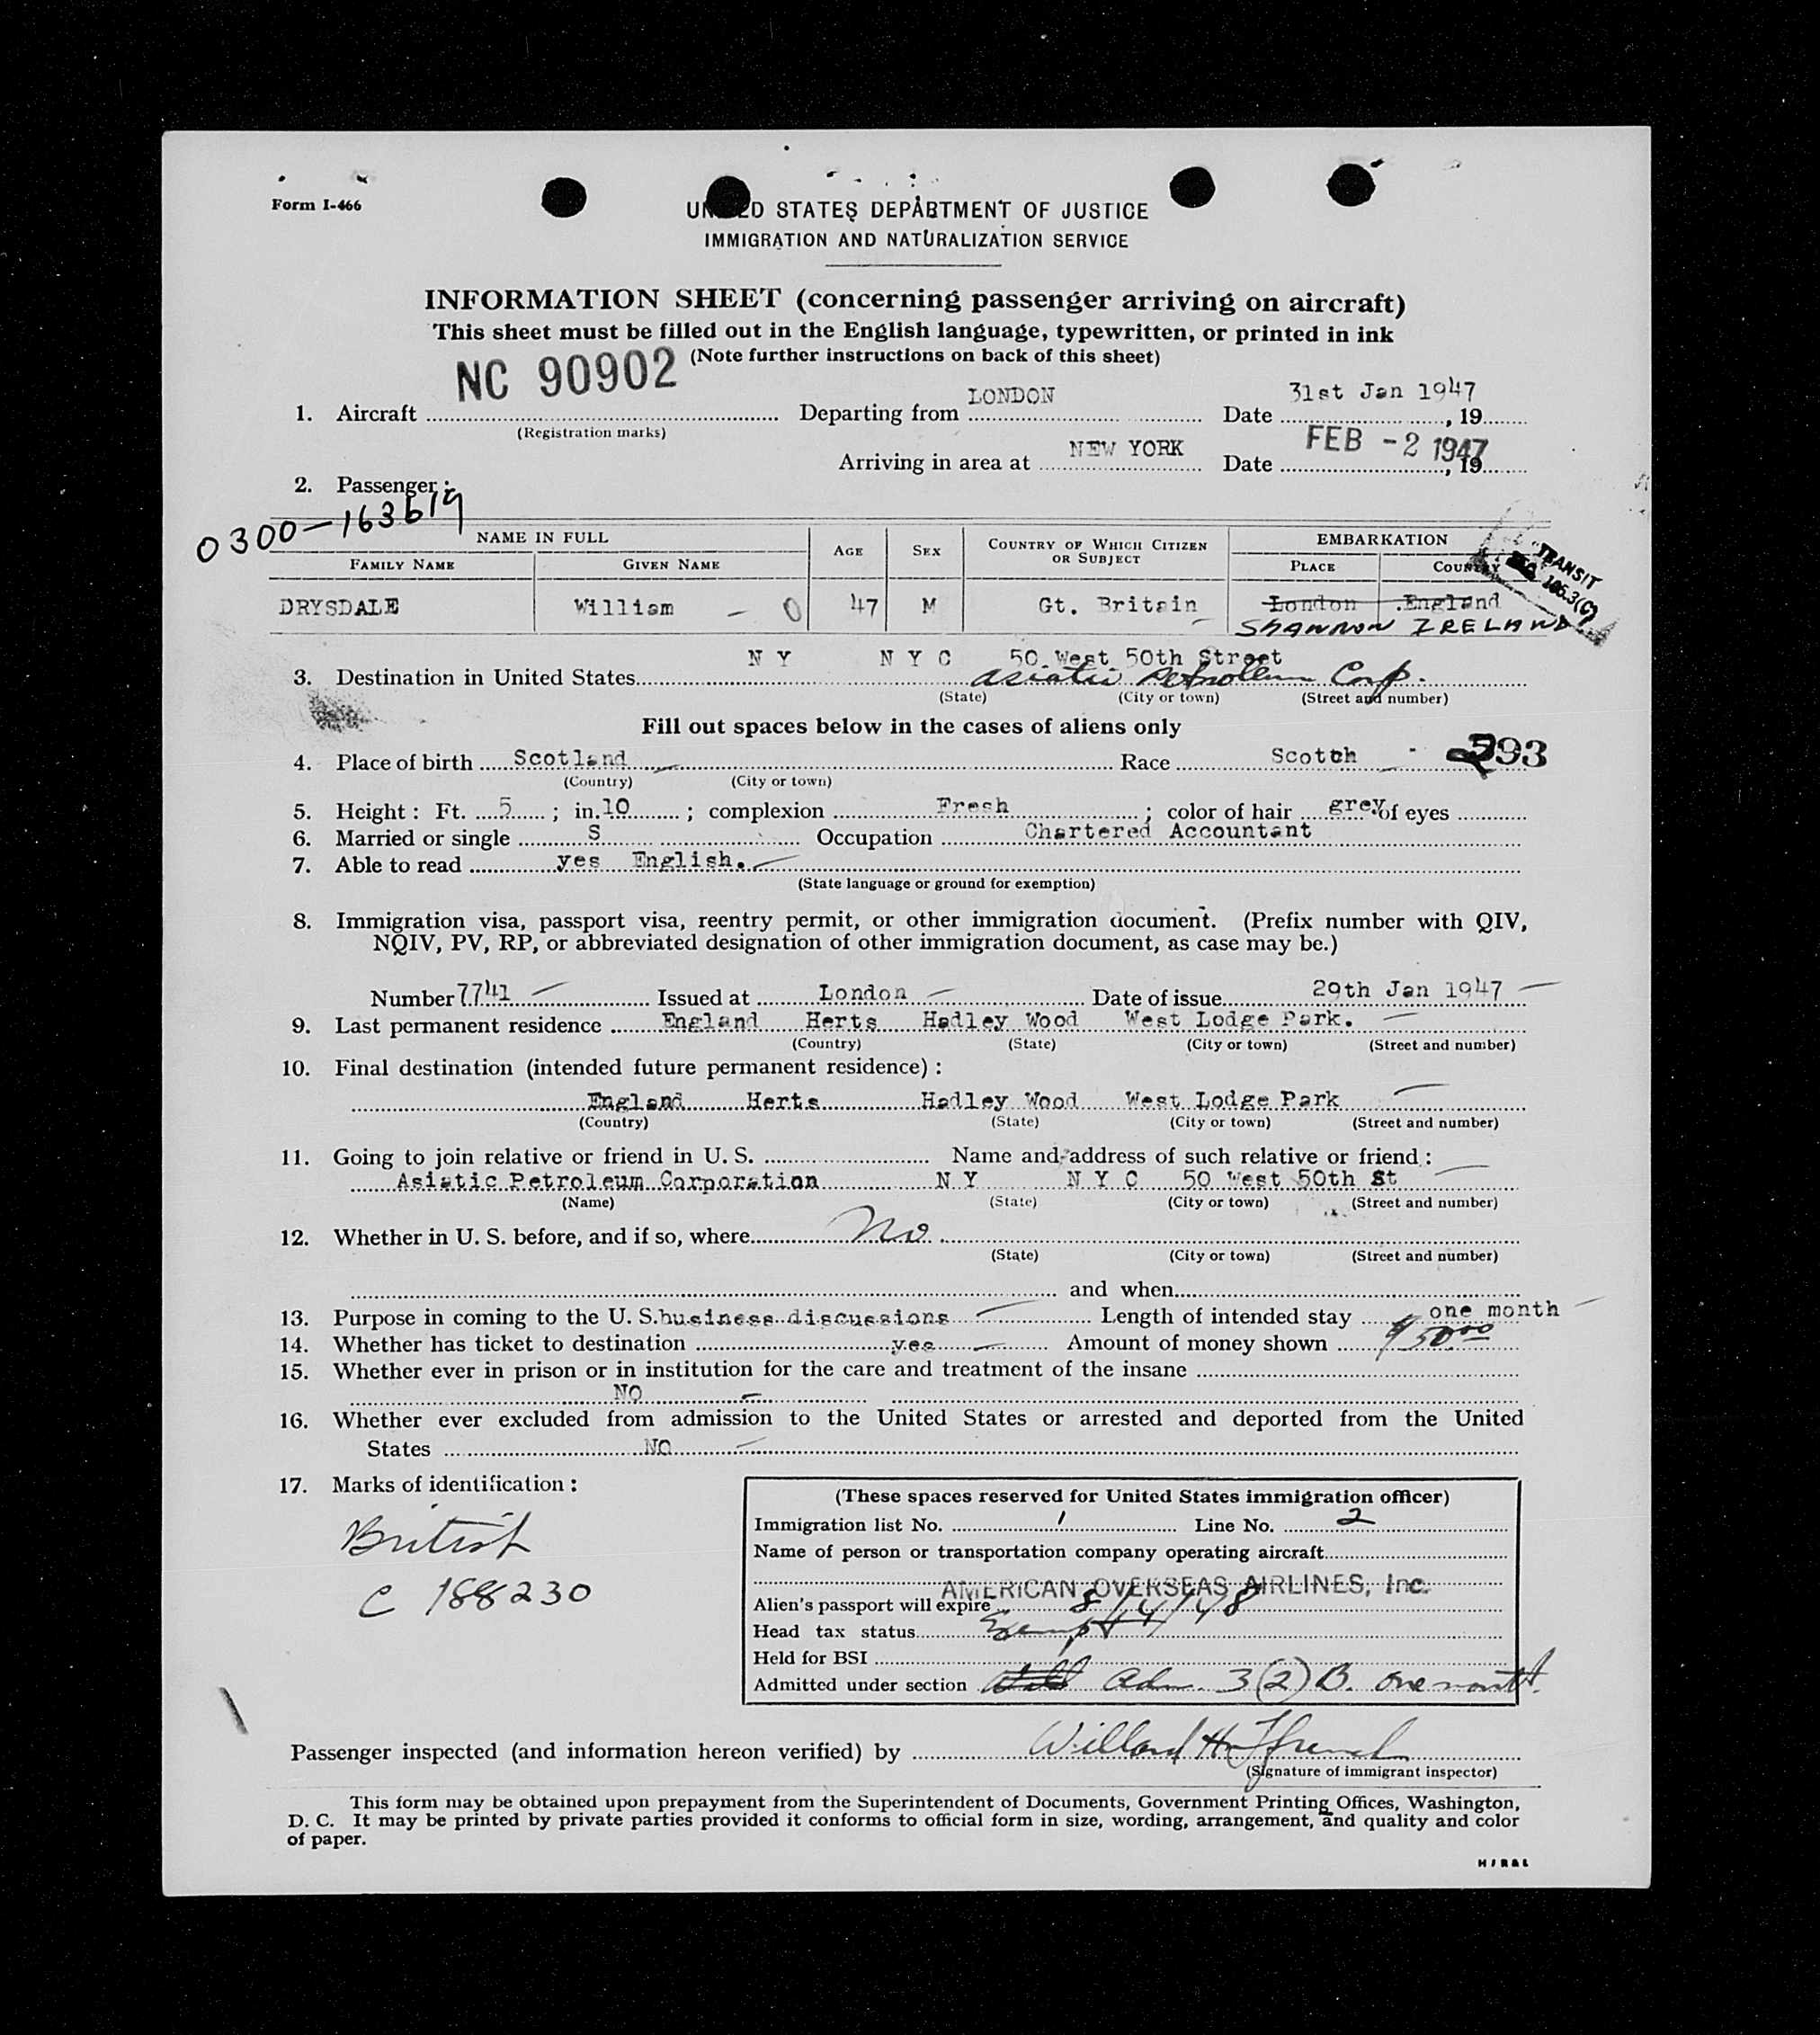 Form I-466
UNITED STATES DEPARTMENT OF JUSTICE
IMMIGRATION AND NATURALIZATION SERVICE
INFORMATION SHEET (concerning passenger arriving on aircraft)
This sheet must be filled out in the English language, typewritten, or printed in ink
(Note further instructions on back of this sheet)
1. Aircraft NC 90902 Departing from LONDON Date 31st Jan 1947, 19
(Registration marks)
Arriving in area at NEW YORK Date FEB -2 1947, 19
2. Passenger:
0300-163619
NAME IN FULL AGE SEX COUNTRY OF WHICH CITIZEN OR SUBJECT EMBARKATION
FAMILY NAME GIVEN NAME PLACE COUNTRY
TRANSIT
106.3(C)
DRYSDALE William - 0 47 M Gt. Britain London England
SHANNON IRELAND
N Y N Y C 50 West 50th Street
3. Destination in United States Asiatic Petroleum Corp.
(State) (City or town) (Street and number)
Fill out spaces below in the cases of aliens only
4. Place of birth Scotland Race Scotch 293
(Country) (City or town)
5. Height: Ft. 5; in. 10; complexion Fresh; color of hair grey of eyes
6. Married or single S Occupation Chartered Accountant
7. Able to read yes English.
(State language or ground for exemption)
8. Immigration visa, passport visa, reentry permit, or other immigration document. (Prefix number with QIV,
NQIV, PV, RP, or abbreviated designation of other immigration document, as case may be.)
Number 7741 Issued at London Date of issue 29th Jan 1947
9. Last permanent residence England Herts Hadley Wood West Lodge Park.
(Country) (State) (City or town) (Street and number)
10. Final destination (intended future permanent residence):
England Herts Hadley Wood West Lodge Park
(Country) (State) (City or town) (Street and number)
11. Going to join relative or friend in U. S. Name and address of such relative or friend:
Asiatic Petroleum Corporation N Y N Y C 50 West 50th St
(Name) (State) (City or town) (Street and number)
12. Whether in U. S. before, and if so, where No.
(State) (City or town) (Street and number)
and when
13. Purpose in coming to the U. S. business discussions Length of intended stay one month
14. Whether has ticket to destination yes Amount of money shown $50.00
15. Whether ever in prison or in institution for the care and treatment of the insane
NO
16. Whether ever excluded from admission to the United States or arrested and deported from the United
States NO
17. Marks of identification:
British
C 188230
(These spaces reserved for United States immigration officer)
Immigration list No. 1 Line No. 2
Name of person or transportation company operating aircraft
AMERICAN OVERSEAS AIRLINES, Inc.
Alien's passport will expire 8/14/48
Head tax status Exempt
Held for BSI
Admitted under section Adm. 3(2)B. one month.
Passenger inspected (and information hereon verified) by Willard H. Ffrench
(Signature of immigrant inspector)
This form may be obtained upon prepayment from the Superintendent of Documents, Government Printing Offices, Washington,
D. C. It may be printed by private parties provided it conforms to official form in size, wording, arrangement, and quality and color
of paper.